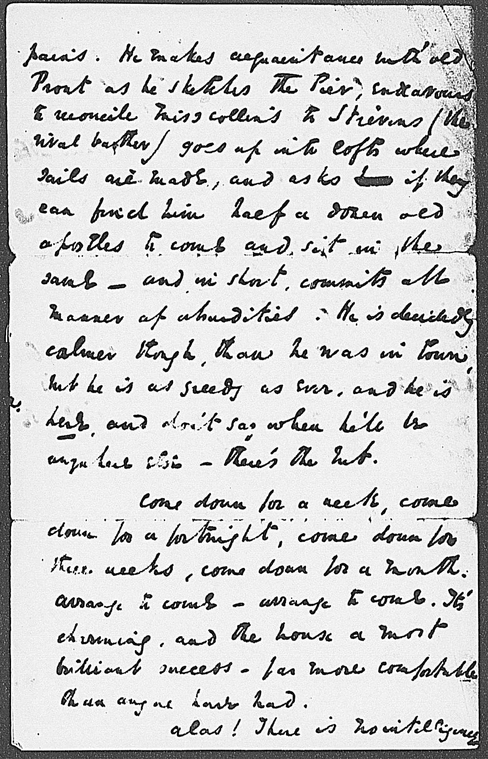 pains. He makes acquaintance with old
Prout as he sketches the Pier, endeavours
to reconcile Miss Collins to Strivens (the
rival bather) goes up into lofts where
sails are made, and asks if they
can find him half a dozen old
apostles to come and sit in the
sand – and in short, commits all
manner of absurdities. He is decidedly
calmer though, than he was in town,
but he is as greedy as ever, and he is
here, and don't say when he'll be
anywhere else – there's the rub.
Come down for a week, come
down for a fortnight, come down for
three weeks, come down for a month.
arrange to come – arrange to come. It's
charming, and the house a most
brilliant success – far more comfortable
than any we have had.
alas! There is no intelligence